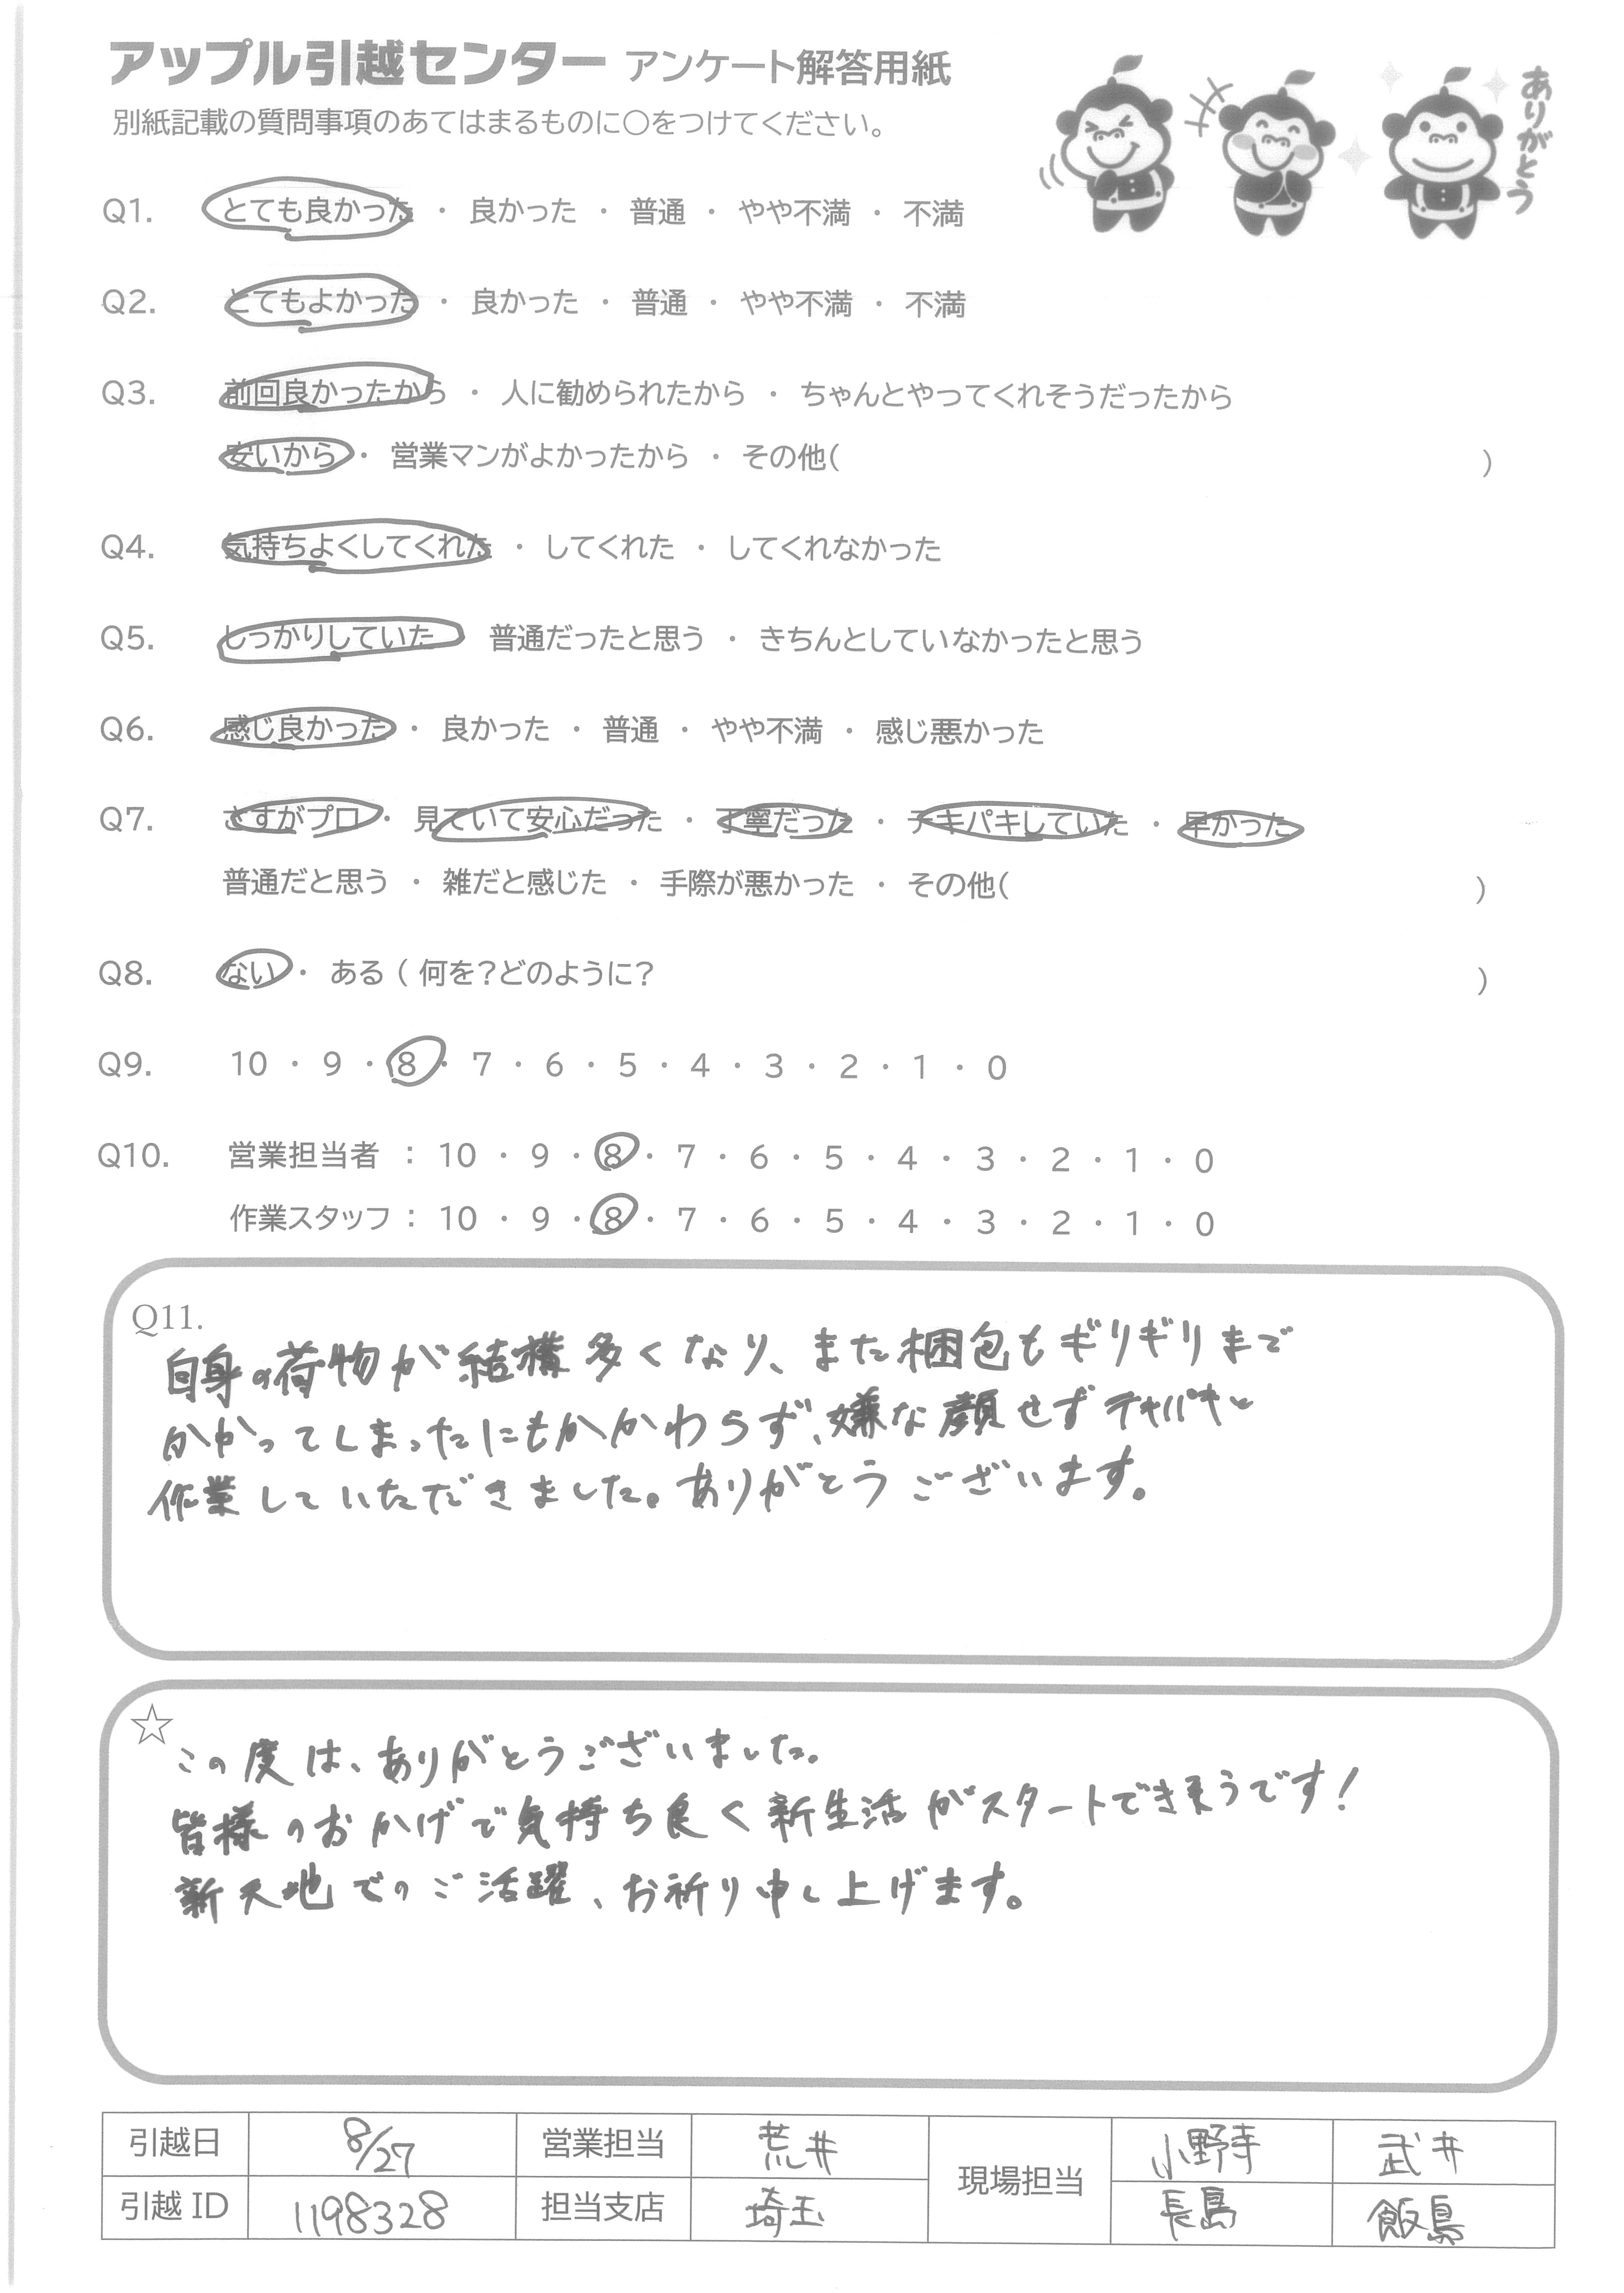 アップル引越センター アンケート解答用紙
別紙記載の質問事項のあてはまるものに○をつけてください。
ありがとう
Q1. とても良かった ・ 良かった ・ 普通 ・ やや不満 ・ 不満
Q2. とてもよかった ・ 良かった ・ 普通 ・ やや不満 ・ 不満
Q3. 前回良かったから ・ 人に勧められたから ・ ちゃんとやってくれそうだったから
安いから ・ 営業マンがよかったから ・ その他( )
Q4. 気持ちよくしてくれた ・ してくれた ・ してくれなかった
Q5. しっかりしていた 普通だったと思う ・ きちんとしていなかったと思う
Q6. 感じ良かった ・ 良かった ・ 普通 ・ やや不満 ・ 感じ悪かった
Q7. さすがプロ ・ 見ていて安心だった ・ 丁寧だった ・ テキパキしていた ・ 早かった
普通だと思う ・ 雑だと感じた ・ 手際が悪かった ・ その他( )
Q8. ない ・ ある ( 何を?どのように? )
Q9. 10 ・ 9 ・ 8 ・ 7 ・ 6 ・ 5 ・ 4 ・ 3 ・ 2 ・ 1 ・ 0
Q10. 営業担当者 : 10 ・ 9 ・ 8 ・ 7 ・ 6 ・ 5 ・ 4 ・ 3 ・ 2 ・ 1 ・ 0
作業スタッフ : 10 ・ 9 ・ 8 ・ 7 ・ 6 ・ 5 ・ 4 ・ 3 ・ 2 ・ 1 ・ 0
Q11.
自身の荷物が結構多くなり、また梱包もギリギリまで
かかってしまったにもかかわらず、嫌な顔せずテキパキと
作業していただきました。ありがとうございます。
☆
この度は、ありがとうございました。
皆様のおかげで気持ち良く新生活がスタートできそうです!
新天地でのご活躍、お祈り申し上げます。
引越日 8/27 営業担当 荒井 現場担当 小野寺 武井
引越 ID 1198328 担当支店 埼玉 長島 飯島